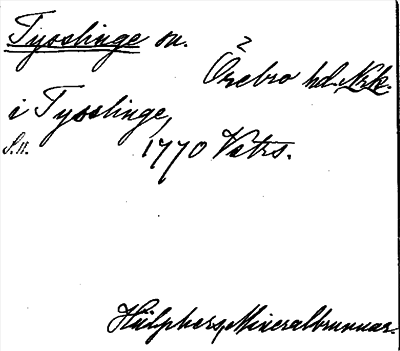 Tysslinge sn.
Örebro hd. Nrk.
i Tysslinge,
S.n. 1770 Vatrs.
Hülphers, Mineralbrunnar.